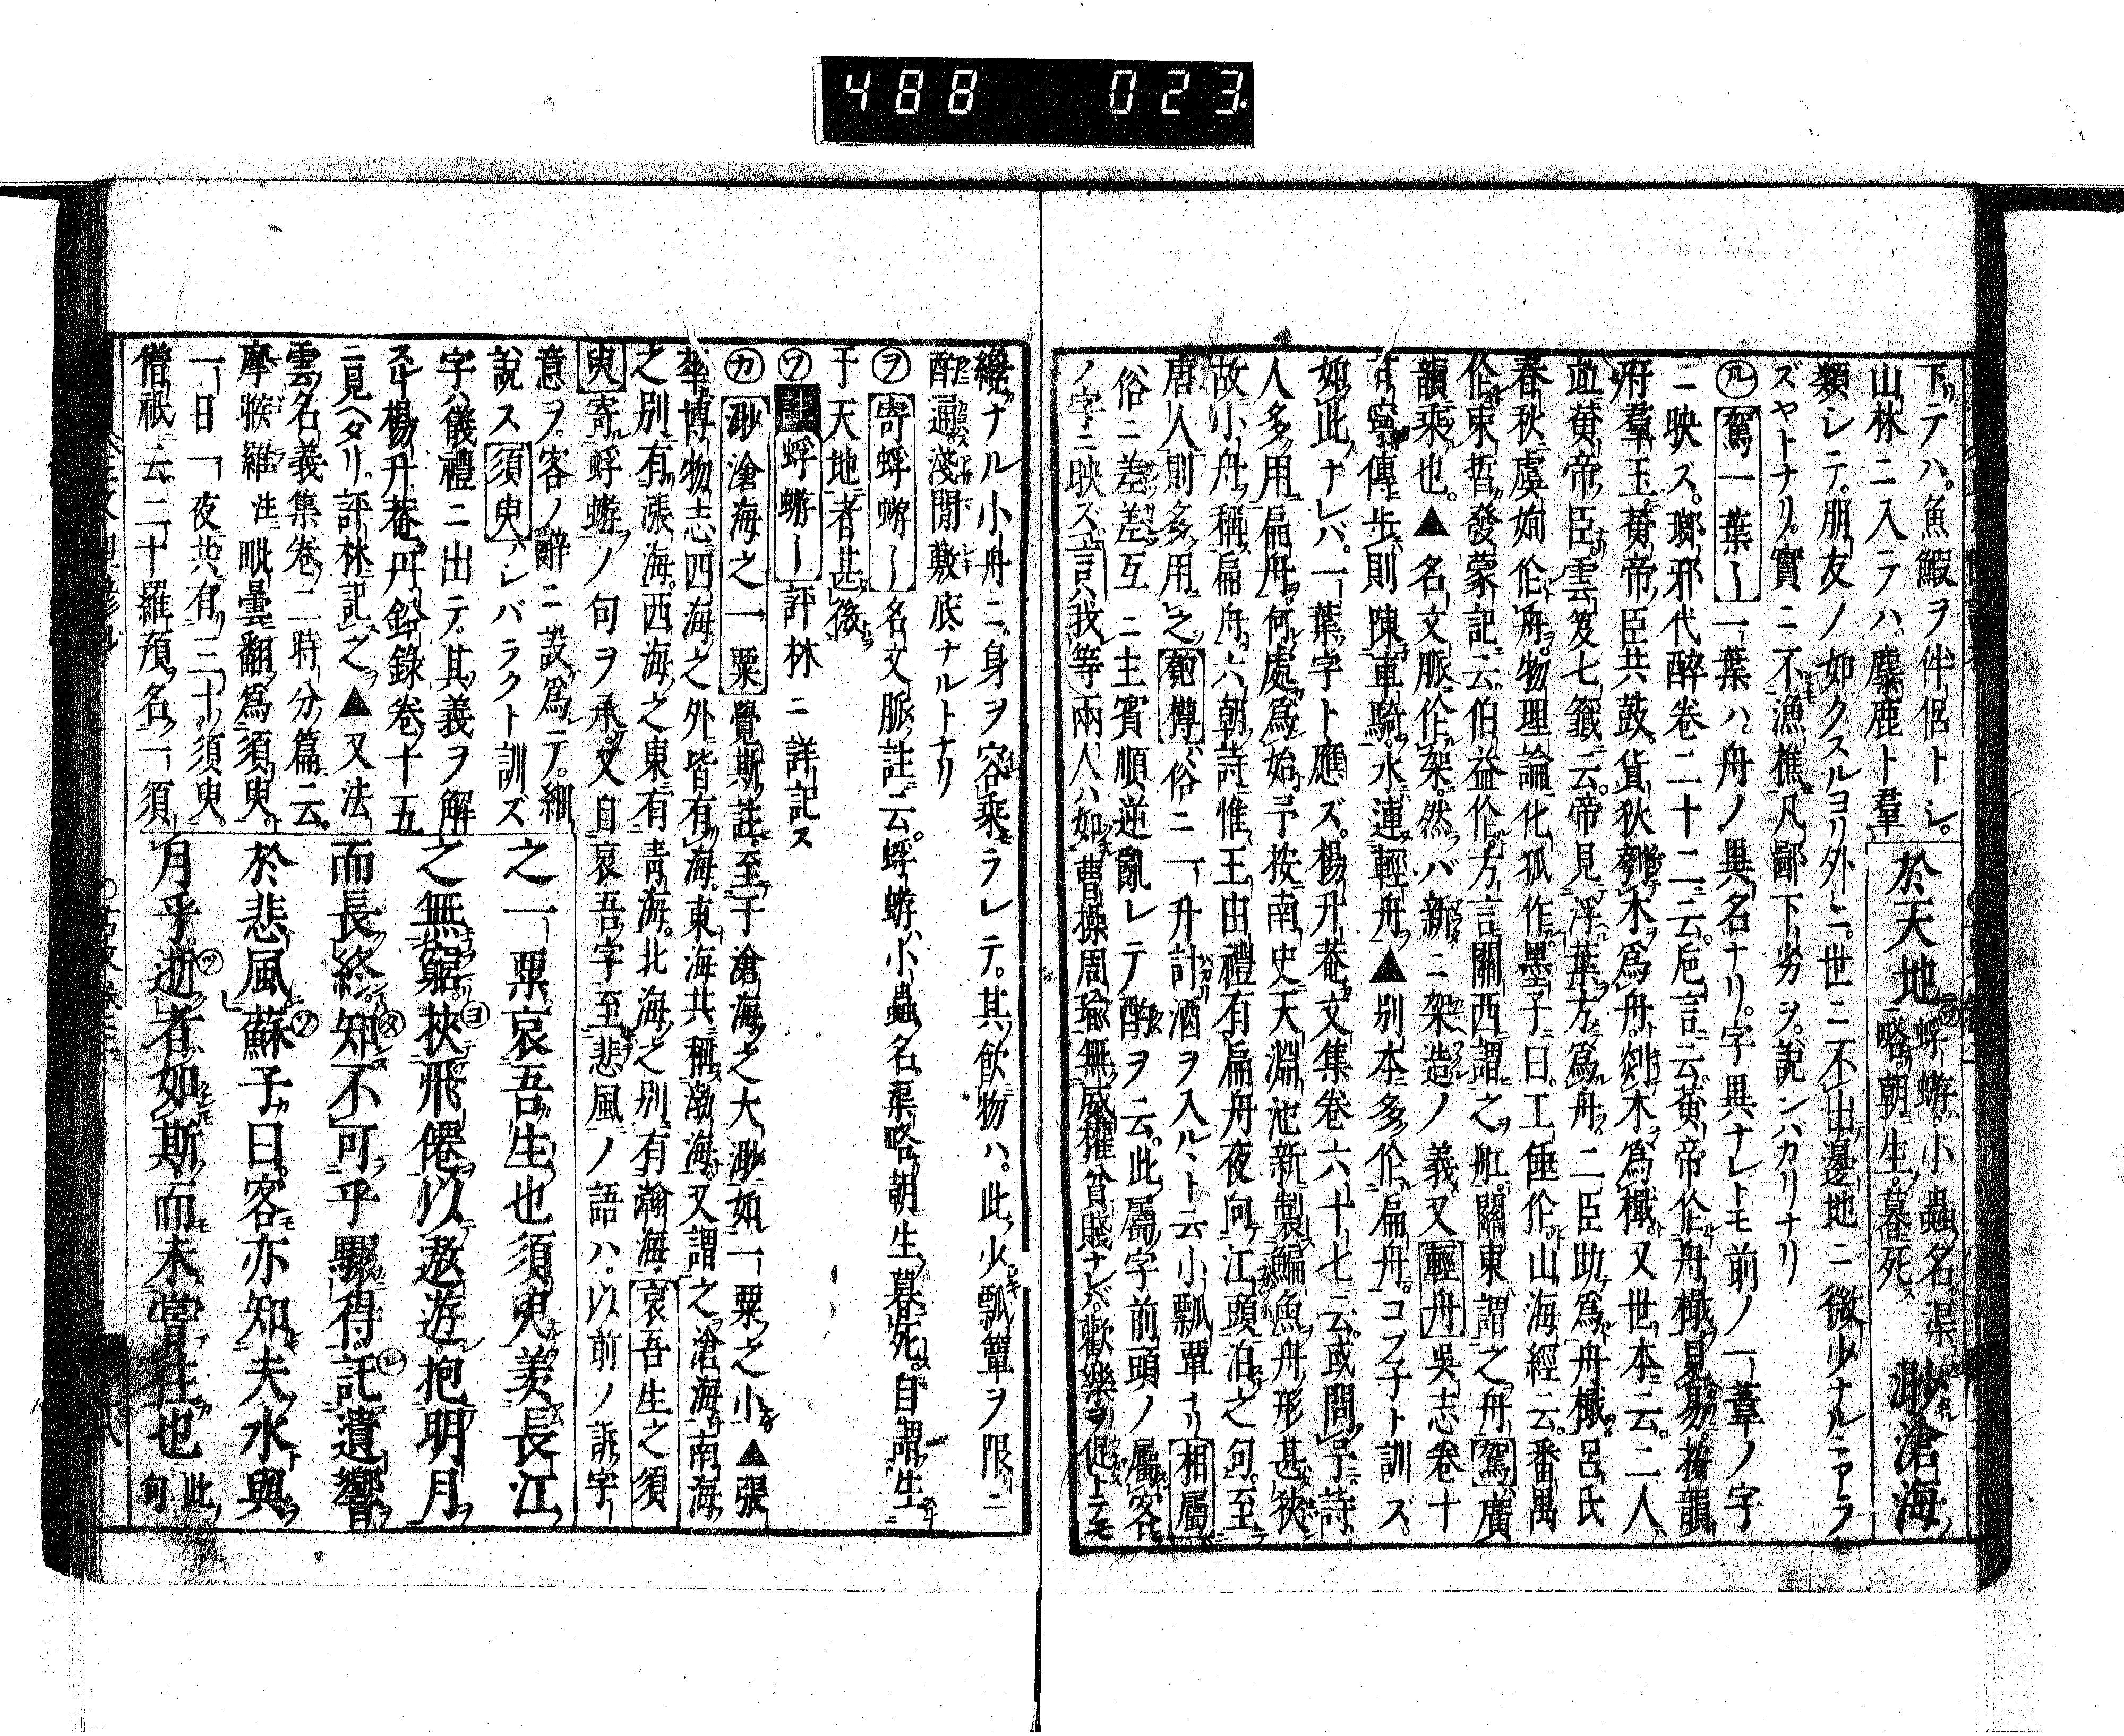 488 023
下テハ。魚鰕ヲ伴侶トシ。
山林ニ入テハ。麋鹿ト羣
於天地
蜉蝣。小蟲名。渠
略。朝生。暮死
渺滄海
類シテ。朋友ノ如クスルヨリ外ニ。世ニ不出邊地ニ微少ナルニアラ
ズヤトナリ。實ニ不漁樵。凡鄙下劣ヲ。説ンバカリナリ
㋸駕一葉ー一葉ハ。舟ノ異名ナリ。字異ナレトモ前ノ一葦ノ字
ニ映ズ。瑯邪代醉卷二十二云。巵言云。黄帝作舟檝見易。按韻
府羣玉。黄帝臣共鼓。貨狄刳木爲舟。剡木爲檝。又世本云。二人
並黄帝臣。雲笈七籤云。帝見浮葉方爲舟。二臣助爲舟檝。呂氏
春秋虞姁作舟。物理論化狐作。墨子曰。工倕作。山海經云。番禺
作。束晳發蒙記云。伯益作。方言關西謂之舡。關東謂之舟駕廣
韻乘也。▲名文脈作架。然バ新ニ架造ノ義又輕舟吳志卷十
甘寧傳歩則陳車騎。水連輕舟▲別本多作扁舟。コブ子ト訓ズ
如此ナレバ。一葉字ト應ズ。楊升菴文集卷六十七云。或問予詩
人多用扁舟。何處爲始。予按南史天淵池新製鯿魚舟形甚狹
故小舟稱扁舟。六朝詩惟王由禮有扁舟夜向江頭泊之句。至
唐人則多用之匏樽俗ニ一升計酒ヲ入ルヽト云小瓢單ナリ相屬
俗ニ差差互ニ主賓順逆亂レテ酌ヲ云。此屬字前頭ノ屬客
ノ字ニ映ズ言只我等兩人ハ如曹操周瑜無威權貧賤ナレバ。歡樂ヲ促トテモ
纔ナル小舟ニ。身ヲ容乘ラレテ。其飮物ハ。此少瓢簞ヲ限ニ
酌通淺間敷底ナルトナリ
㋾寄蜉蝣ー名文脈註云。蜉蝣小蟲名。渠略朝生暮死。自謂生
于天地者甚微
㋻註蜉蝣ー評林ニ詳記ス
㋕渺滄海之一粟覺斯註。至于滄海之大渺如一粟之小▲張
華博物志四海之外皆有海。東海共稱渤海。又謂之滄海。南海
之別有漲海。西海之東有青海。北海之別有瀚海哀吾生之須
臾寄蜉蝣ノ句ヲ承。又自哀吾字至悲風ノ語ハ。以前ノ訴字
意ヲ。客ノ辭ニ設爲テ。細
說ス須臾シバラクト訓ズ
字ハ儀禮ニ出テ。其義ヲ解
スヿ楊升菴丹鉛錄卷十五
ニ見ヘタリ。評林記之▲又法
雲名義集卷二時分篇云。
摩睺羅註毗曇翻爲須臾。
一日一夜共有三十須臾。
僧祇云。二十羅預名一須
之一粟哀吾生也須臾羨長江
之無窮。挾飛僊以遨遊。抱明月
而長終。知不可乎驟得。託遺響
於悲風蘇子曰。客亦知夫水與
月乎。逝者如斯。而未嘗往也
此
句